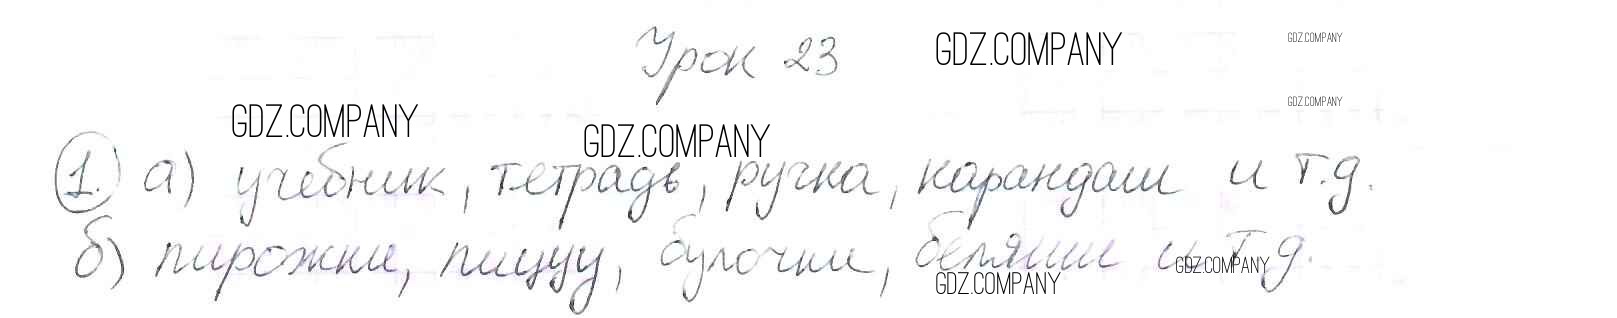 Урок 23
GDZ.COMPANY
GDZ.COMPANY
GDZ.COMPANY
GDZ.COMPANY
GDZ.COMPANY
1. а) учебник, тетрадь, ручка, карандаш и т.д.
б) пирожки, пиццу, булочки, беляши и т.д.
GDZ.COMPANY
GDZ.COMPANY